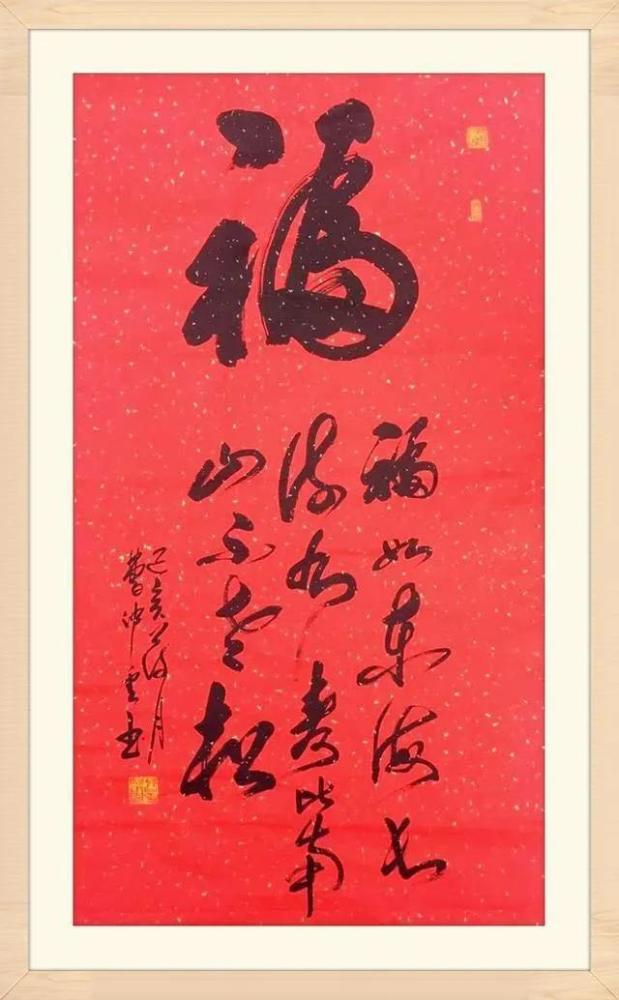 福
福如东海长
流水寿比南
山不老松
己亥年